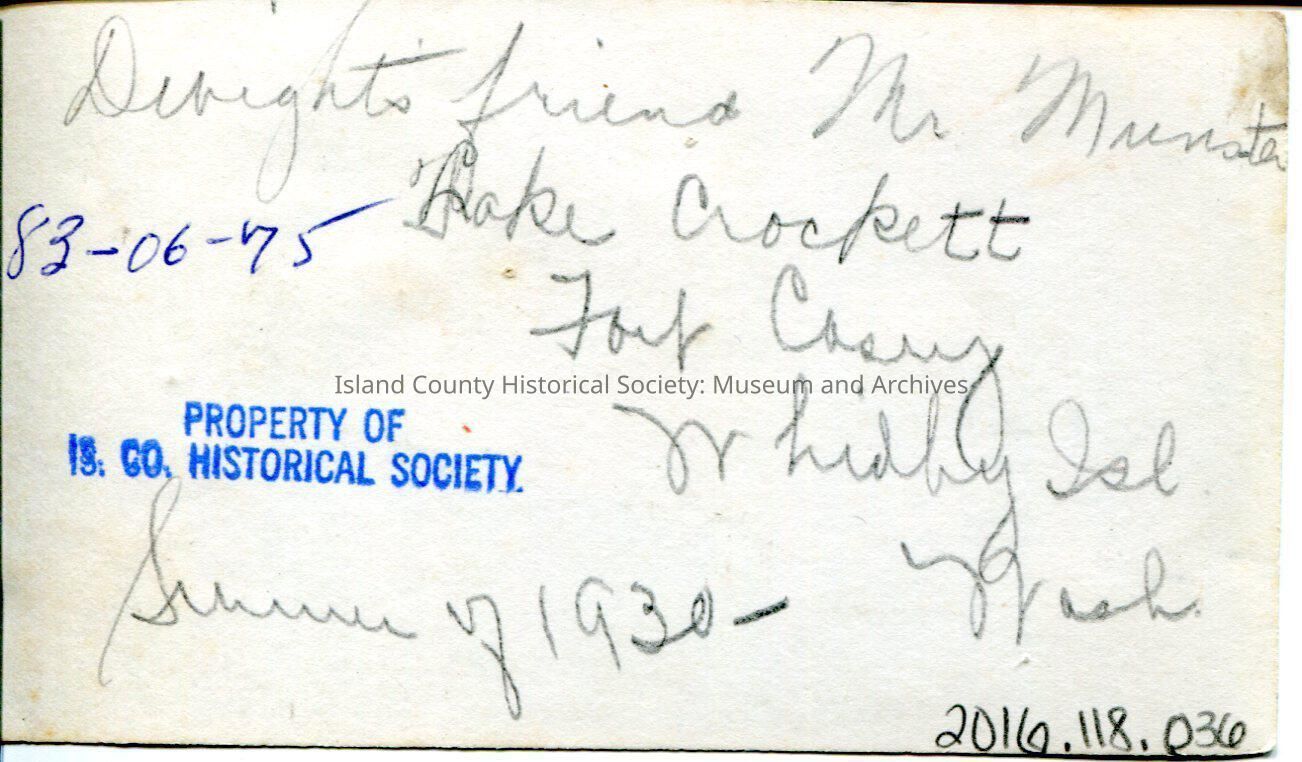 Dwight's friend Mr Munster
Lake Crockett
83-06-75
Fort Casey
Island County Historical Society: Museum and Archives
PROPERTY OF
IS. CO. HISTORICAL SOCIETY.
Whidby Isl
Wash.
Summer of 1930-
2016.118.036